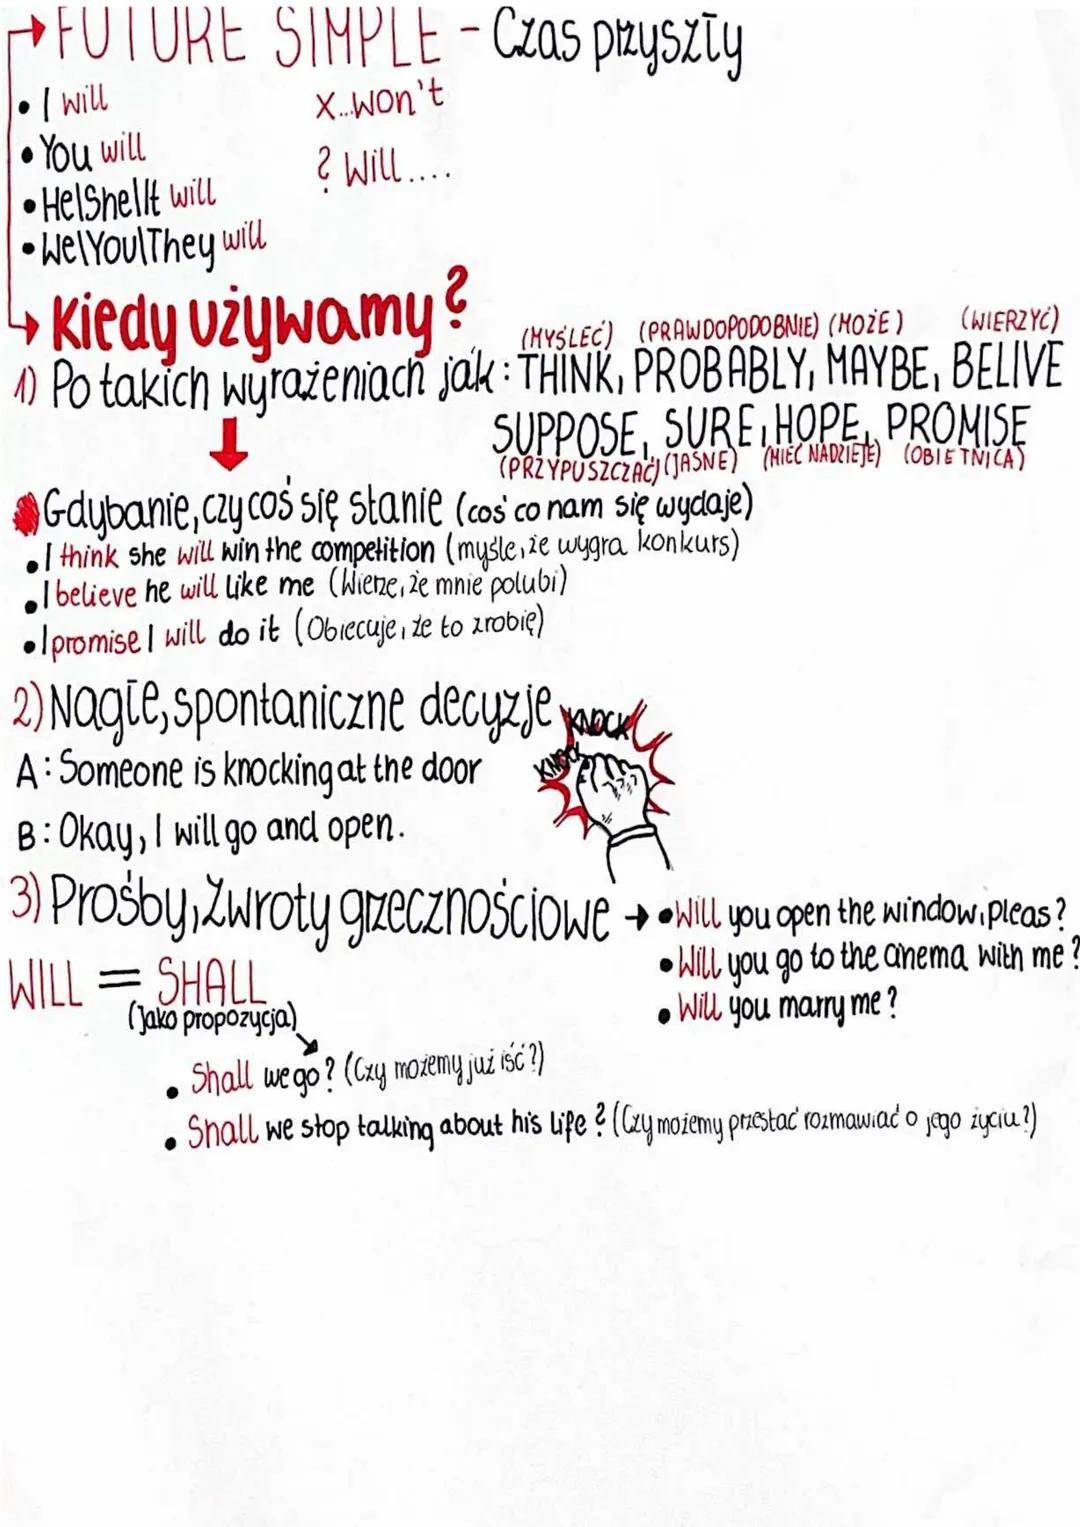 FUTURE SIMPLE - Czas przyszły
• I will
X...won't
• You will
? Will....
• He\She\It will
• We\You\They will
Kiedy używamy?
(MYŚLEĆ) (PRAWDOPODOBNIE) (MOŻE) (WIERZYĆ)
1) Po takich wyrażeniach jak: THINK, PROBABLY, MAYBE, BELIVE
SUPPOSE, SURE, HOPE, PROMISE
(PRZYPUSZCZAĆ) (JASNE) (MIEĆ NADZIEJE) (OBIETNICA)
Gdybanie, czy coś się stanie (coś co nam się wydaje)
• I think she will win the competition (myśle, że wygra konkurs)
• I believe he will like me (Wierze, że mnie polubi)
• I promise I will do it (Obiecuje, że to zrobię)
2) Nagłe, spontaniczne decyzje
KNOCK
KNOCK
A: Someone is knocking at the door
B: Okay, I will go and open.
3) Prośby, Zwroty grzecznościowe → • Will you open the window, pleas?
• Will you go to the cinema with me?
• Will you marry me?
WILL = SHALL
(Jako propozycja)
• Shall we go? (Czy możemy już iść?)
• Shall we stop talking about his life? (Czy możemy przestać rozmawiać o jego życiu?)